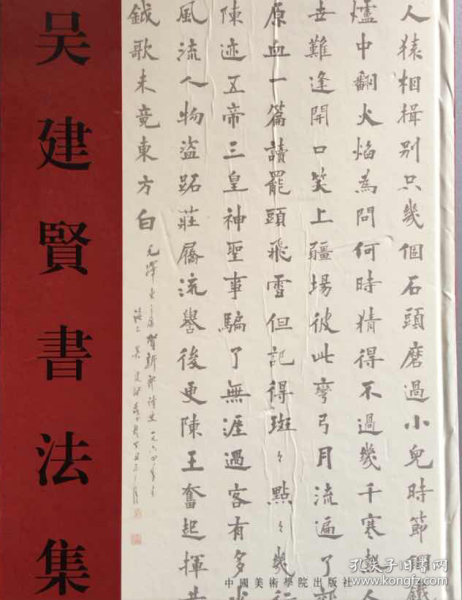 吴建賢書法集
人猿相揖别只幾個石頭磨過小兒時節銅鐵
爐中翻火焰為問何時猜得不過幾千寒熱人
世難逢開口笑上疆場彼此彎弓月流遍了郊
原血一篇讀罷頭飛雪但記得斑々點々幾行
陳迹五帝三皇神聖事騙了無涯過客有多
風流人物盜跖莊屩流譽後更陳王奮起揮
鉞歌未竟東方白
賀新郎詠史一九六四年
中國美術學院出版社